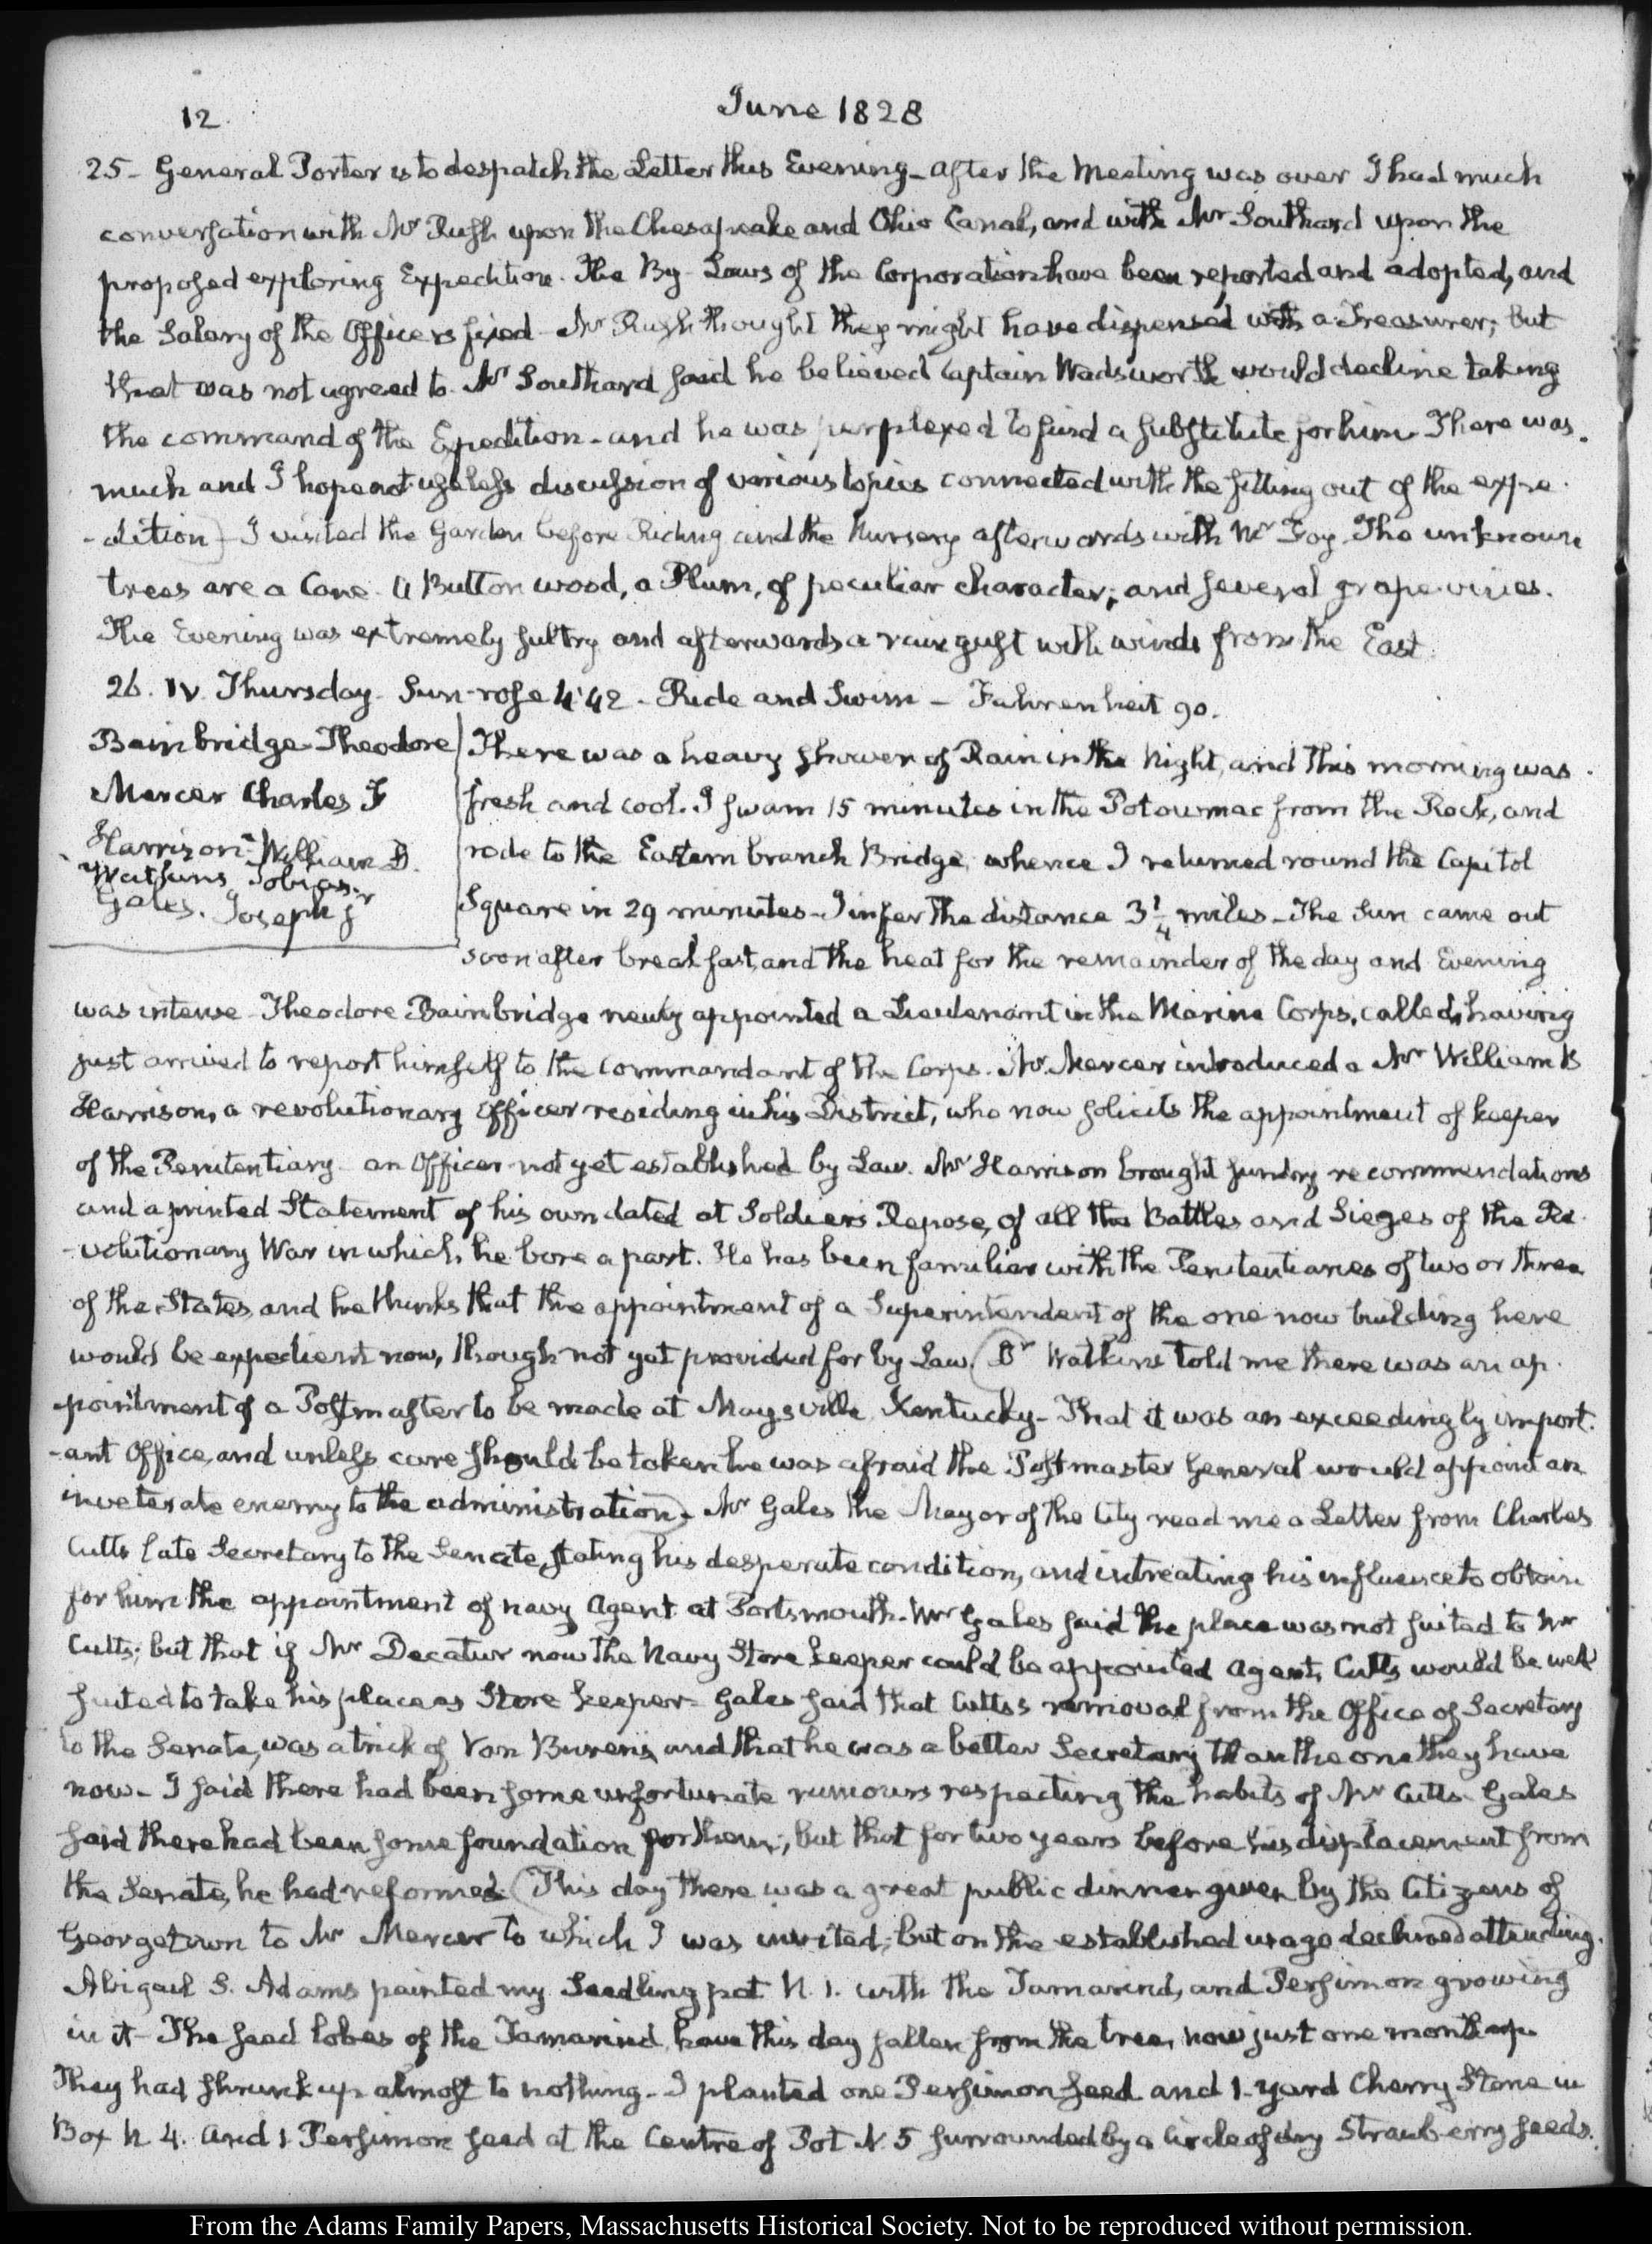 12.
June 1828
25 - General Porter is to despatch the Letter this Evening - After the Meeting was over I had much
conversation with Mr Rush upon the Chesapeake and Ohio Canal, and with Mr Southard upon the
proposed exploring Expedition. The By-Laws of the Corporation have been reported and adopted, and
the Salary of the Officers fixed - Mr Rush thought they might have dispensed with a Treasurer; but
that was not agreed to. Mr Southard said he believed Captain Wadsworth would decline taking
the command of the Expedition - and he was perplexed to find a substitute for him. There was
much and I hope not useless discussion of various topics connected with the fitting out of the expe
-dition) - I visited the Garden before Riding and the Nursery afterwards with Mr Foy. The unknown
trees are a Cane. A Button wood, a Plum, of peculiar character; and several grape-vines.
The Evening was extremely sultry and afterwards a rain gust with winds from the East.
26. IV. Thursday. Sun-rose 4:42 - Ride and Swim - Fahrenheit 90.
Bainbridge-Theodore
Mercer Charles F
Harrison-William B.
Watkins Tobias
Gales. Joseph jr
There was a heavy shower of Rain in the Night, and this morning was
fresh and cool. I swam 15 minutes in the Potowmac from the Rock, and
rode to the Eastern branch Bridge, whence I returned round the Capitol
Square in 29 minutes - I infer the distance 3 1/4 miles - The Sun came out
soon after breakfast, and the heat for the remainder of the day and Evening
was intense - Theodore Bainbridge newly appointed a Lieutenant in the Marine Corps, called, having
just arrived to report himself to the Commandant of the Corps. Mr Mercer introduced a Mr William B
Harrison, a revolutionary Officer residing in his District, who now solicits the appointment of keeper
of the Penitentiary - an Officer not yet established by Law. Mr Harrison brought sundry recommendations
and a printed Statement of his own dated at Soldiers Repose, of all the Battles and Sieges of the Re
-volutionary War in which he bore a part. He has been familiar with the Penitentiaries of two or three
of the States, and he thinks that the appointment of a Superintendent of the one now building here
would be expedient now, though not yet provided for by Law. (Dr Watkins told me there was an ap
pointment of a Postmaster to be made at Maysville Kentucky - That it was an exceedingly import
-ant Office, and unless care should be taken he was afraid the Postmaster General would appoint an
inveterate enemy to the administration) - Mr Gales the Mayor of the City read me a Letter from Charles
Cutts late Secretary to the Senate, stating his desperate condition, and intreating his influence to obtain
for him the appointment of navy Agent at Portsmouth. Mr Gales said the place was not suited to Mr
Cutts; but that if Mr Decatur now the Navy Store keeper could be appointed Agent, Cutts would be well
suited to take his place as Store keeper - Gales said that Cutts's removal from the Office of Secretary
to the Senate, was a trick of Van Buren's, and that he was a better Secretary than the one they have
now - I said there had been some unfortunate rumours respecting the habits of Mr Cutts - Gales
said there had been some foundation for them; but that for two years before his displacement from
the Senate, he had reformed. (This day there was a great public dinner given by the Citizens of
Georgetown to Mr Mercer to which I was invited; but on the established usage declined attending.)
Abigail S. Adams painted my Seedling pot N. 1. with the Tamarind, and Persimon growing
in it - The seed lobes of the Tamarind have this day fallen from the tree, now just one month up.
They had shrunk up almost to nothing - I planted one Persimon seed and 1-yard Cherry Stone in
Box N 4. and 1 Persimon seed at the Centre of Pot N 5 surrounded by a Circle of dry Strawberry seeds.
From the Adams Family Papers, Massachusetts Historical Society. Not to be reproduced without permission.